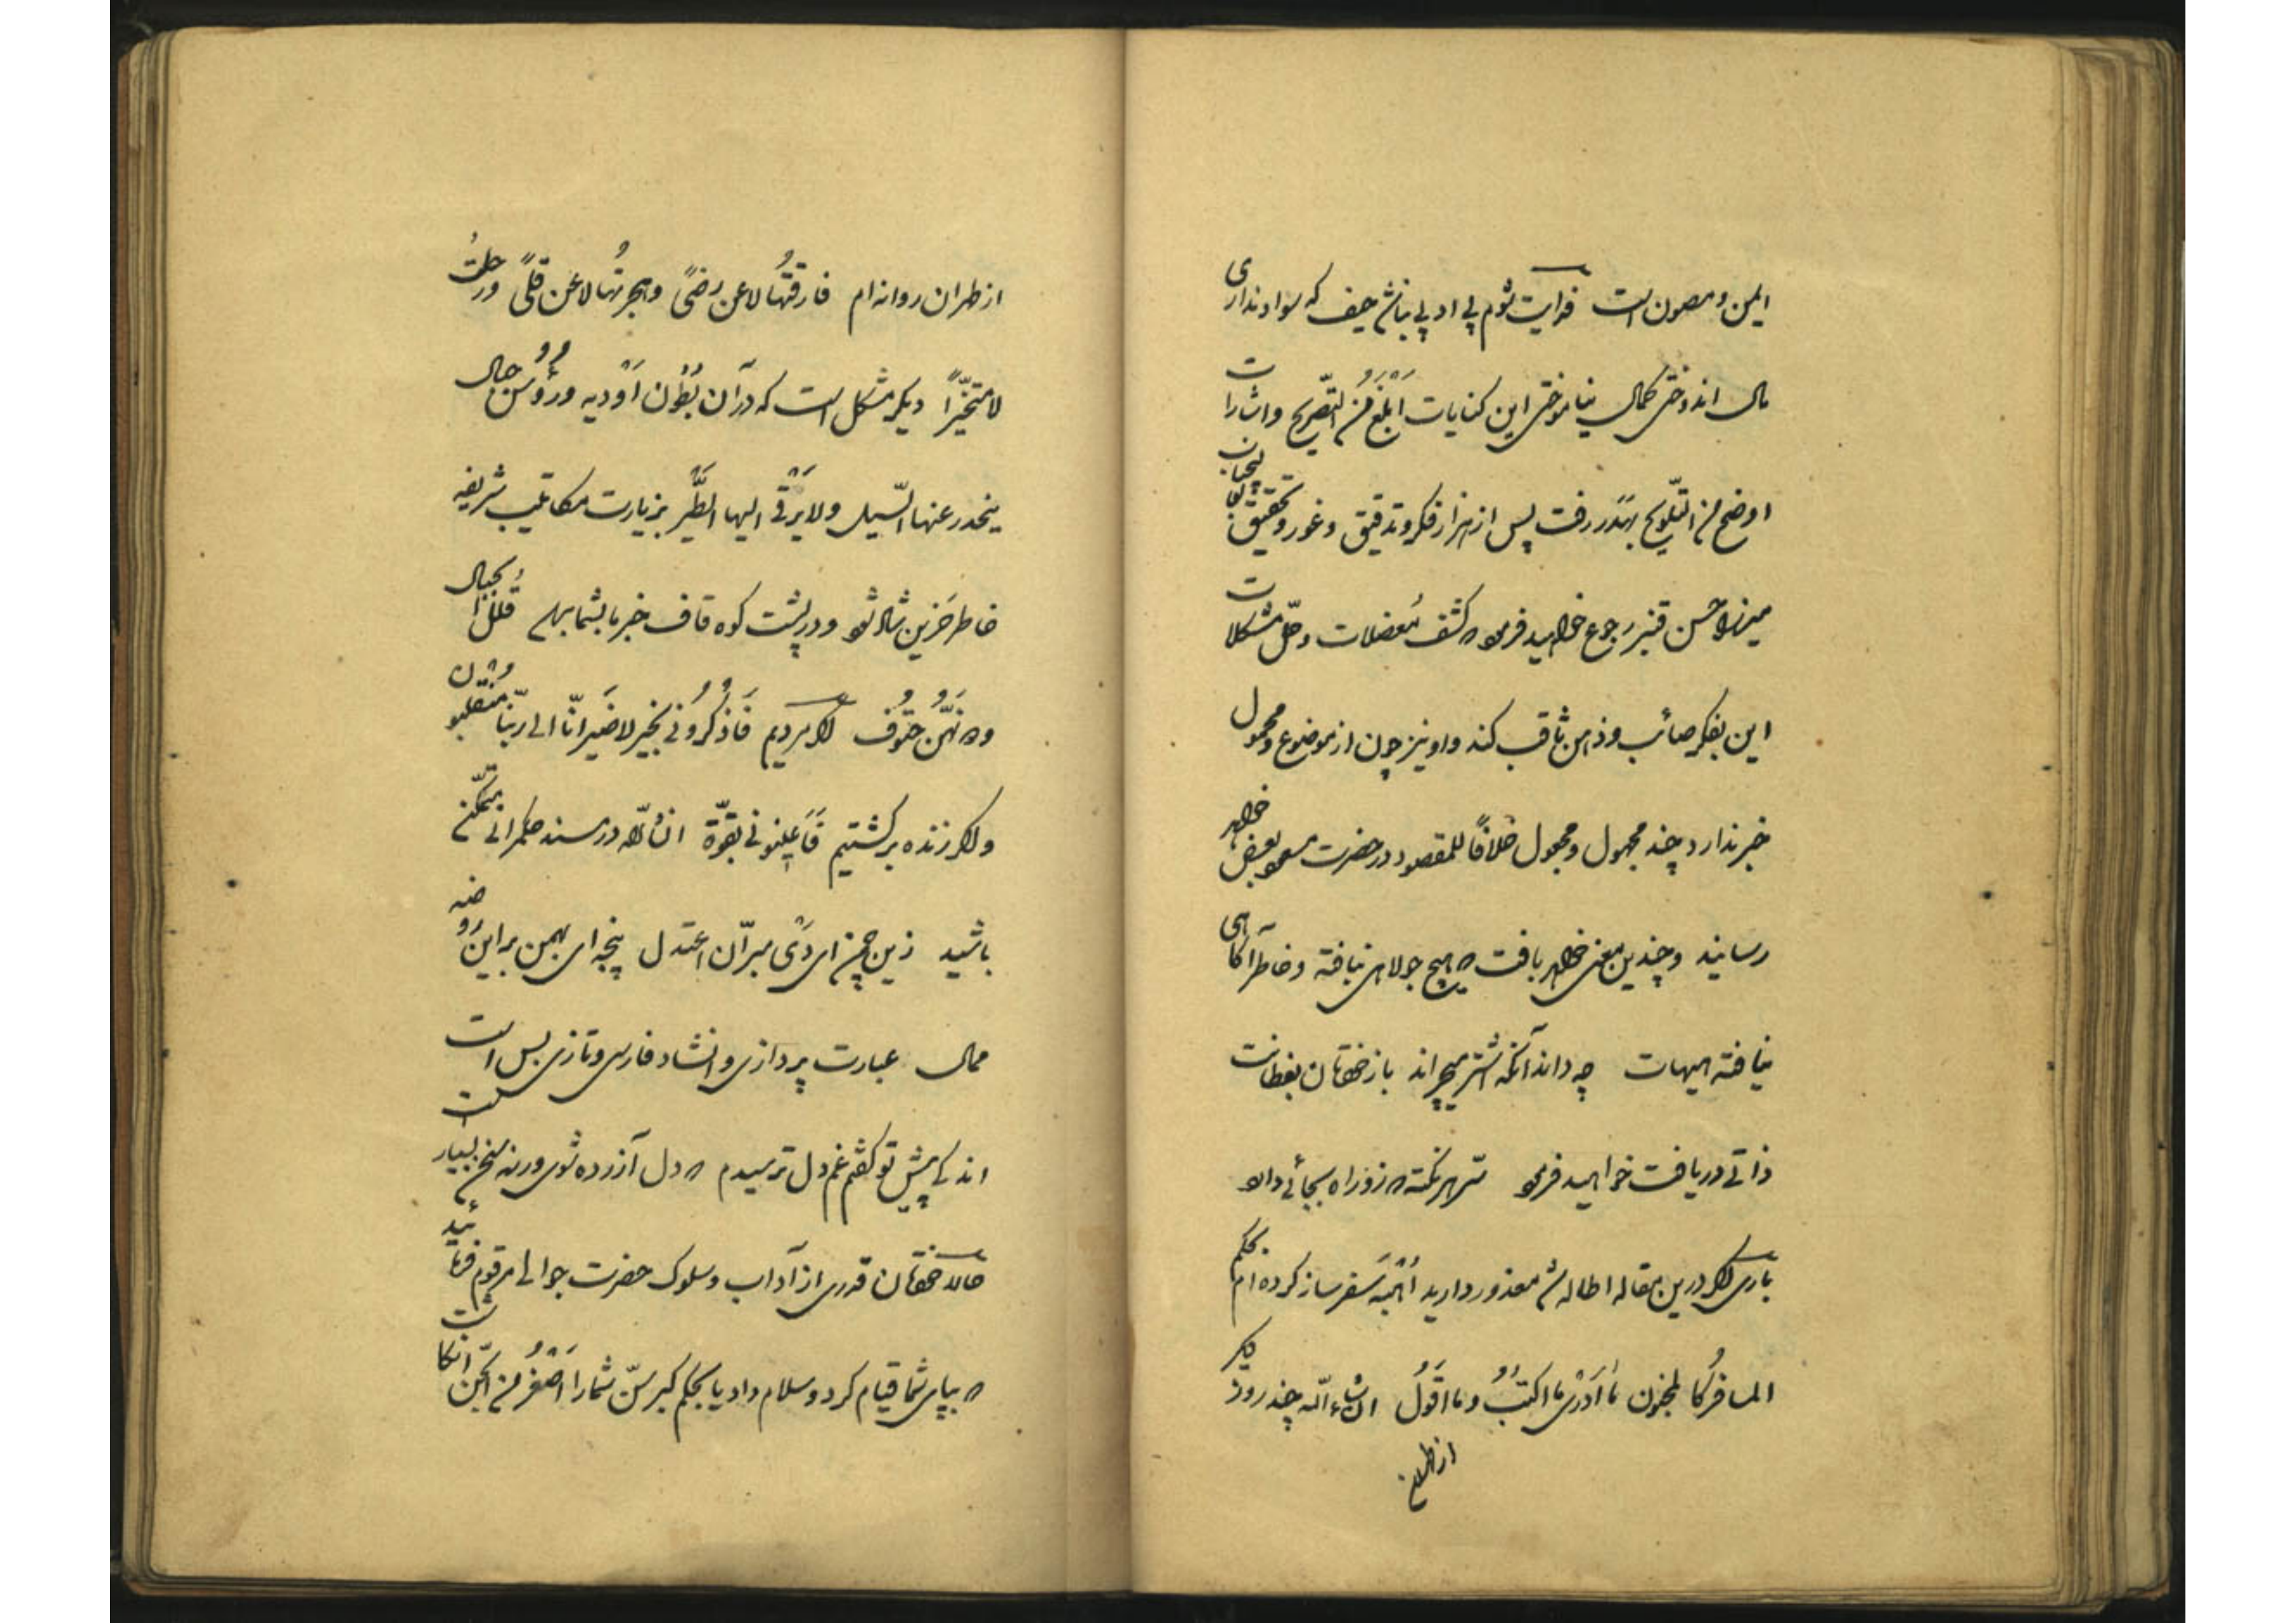 ایمن و مصون است فدایت شوم پی او پی نباش حیف که سواد نداری
مال اندوختی کمال نیاموختی این کنایات اَبْلَغُ مِنَ التّصریح و اشارات
اوضح من التلویح بهَدَر رفت پس از هزار فکر و تدقیق و غور و تحقیق
میرزا حسن قنبر رجوع خواهید فرمود که کشف مُعضلات و حلّ مشکلات
این بفکر صائب و ذهن ثاقب کند و او نیز چون از موضوع و محمول
خبر ندارد چند مجهول و مجعول خلافاً للمقصود در حضرت سمو بعرض خواهد
رسانید و چندین معنی خواهد بافت که هیچ جولاهی نبافته و خاطر آگاهی
نیافته هیهات چه داند آنکه اشتر میچراند باز خودتان بفطانت
ذاتی دریافت خواهید فرمود سرّ هر نکته که زد راه بجائی دارد
باری اگر درین مقاله اطاله شد معذور دارید اُهْبَه سَفر ساز کرده ام بحکم
المسافرُ کالمجنون ما اَدْری ما اکتبُ و ما اَقُولُ ان شاء الله چند روز دیگر
از طهران
از طهران روانه ام فارقتُها لا عن رِضیً و هجرتُها لا عن قِلیً و رحلتُ
لا متخیّراً دیگر مشکل است که در آن بُطُون اَوْدیه و رُؤُس جبال
ینحدر عنها السّیل و لا یَرْقی الیها الطَّیر بزیارت مکاتیب شریفه
خاطر حَزین شاد شود و در پشت کوه قاف خبر ما بشما برسد قُلَلُ الجبال
و دونَهُنَّ حُتُوف اگر مردیم فَاذْکُرُونی بخیر لا ضَیر انّا الی ربّنا منقلبون
و اگر زنده برگشتیم فَاَعِینونی بقوّة ان شاء الله در مسند حکمرانی متمکّن
باشید زین چمن ای دَی مبر آن اعتدل پنجه ای بهمن بر این رَوضه
ممال عبارت پردازی و انشاد فارسی و تازی بس است
اندکی پیش تو گفتم غم دل ترسیدم که دل آزرده شوی ورنه سخن بسیار است
حالا خودتان قدری از آداب و سلوک حضرت جوالی مرقوم فرمائید
که بپای شما قیام کرد و سلام داد یا بحکم کبر سنّ شما را اَصْغَرُ من الجن انگاشت